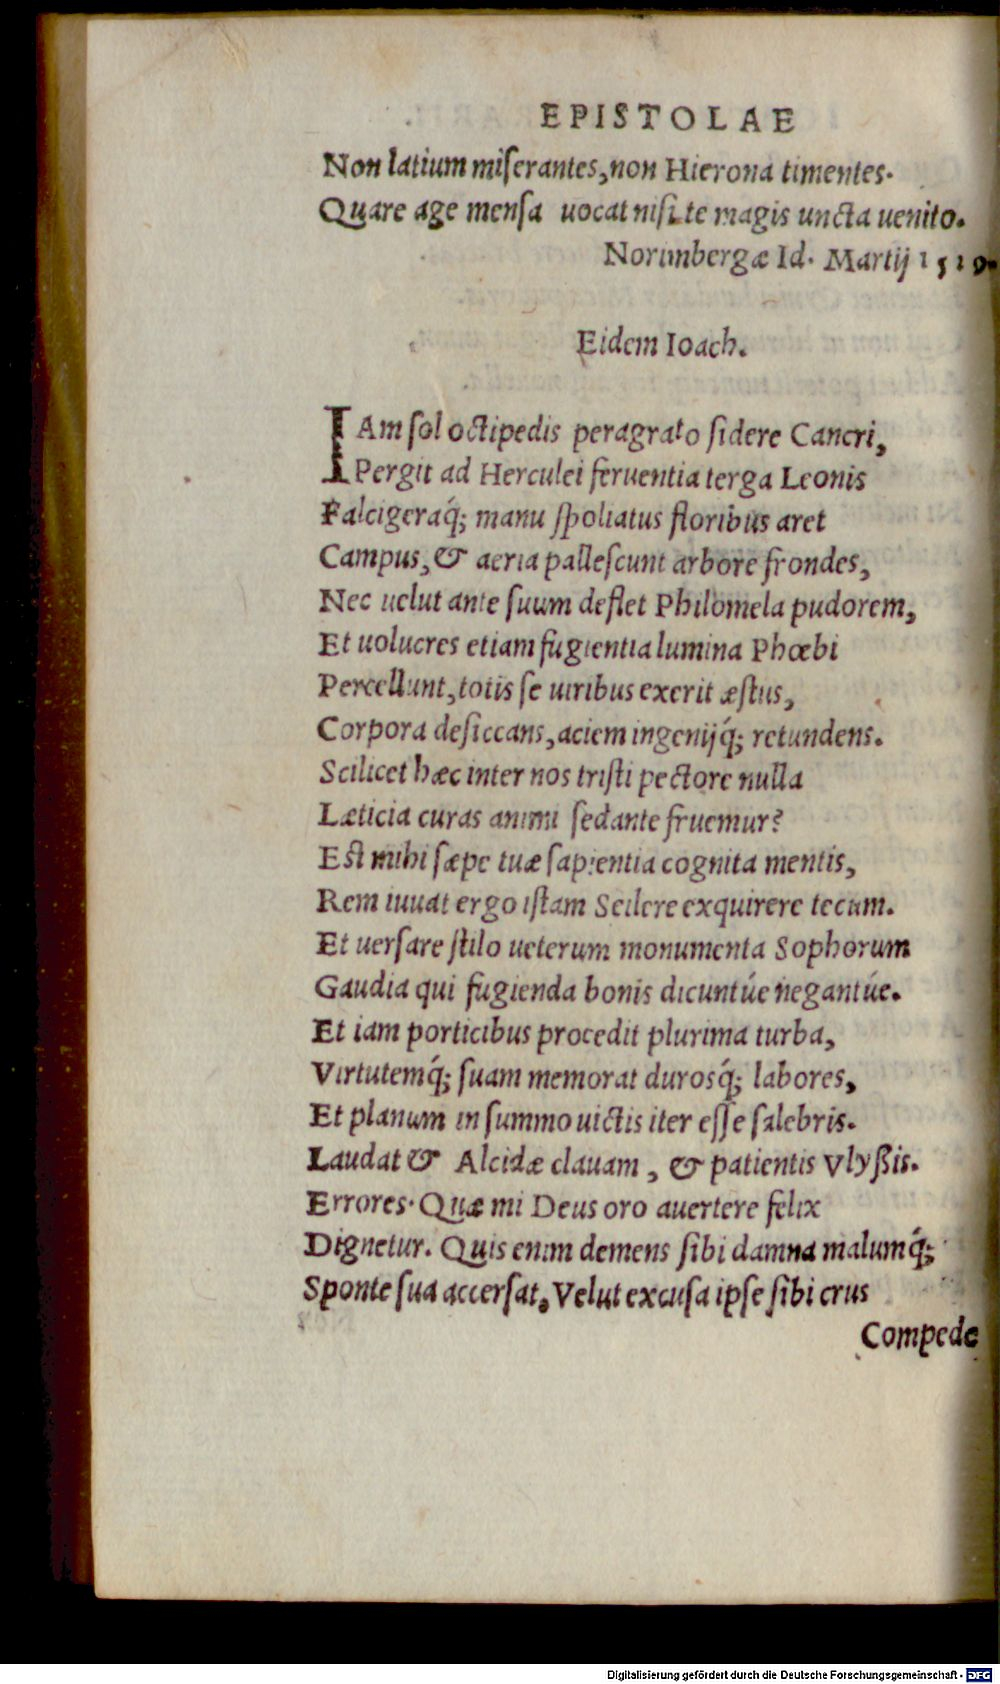 EPISTOLAE
Non latium miserantes, non Hierona timentes.
Quare age mensa uocat nisi te magis uncta uenito.
Norimbergæ Id. Martij 1519.
Eidem Ioach.
IAm sol octipedis peragrato sidere Cancri,
Pergit ad Herculei feruentia terga Leonis
Falcigeraq́; manu spoliatus floribus aret
Campus, & aeria pallescunt arbore frondes,
Nec uelut ante suum deflet Philomela pudorem,
Et uolucres etiam fugientia lumina Phœbi
Percellunt, totis se uiribus exerit æstus,
Corpora desiccans, aciem ingenijq́; retundens.
Scilicet hæc inter nos tristi pectore nulla
Læticia curas animi sedante fruemur?
Est mihi sæpe tuæ sapientia cognita mentis,
Rem iuuat ergo istam Scilere exquirere tecum.
Et uersare stilo ueterum monumenta Sophorum
Gaudia qui fugienda bonis dicuntúe negantúe.
Et iam porticibus procedit plurima turba,
Virtutemq́; suam memorat durosq́; labores,
Et planum in summo uictis iter esse salebris.
Laudat & Alcidæ clauam, & patientis Vlyßis.
Errores. Quæ mi Deus oro auertere felix
Dignetur. Quis enim demens sibi damna malumq́;
Sponte sua accersat. Velut excusa ipse sibi crus
Compede
Digitalisierung gefördert durch die Deutsche Forschungsgemeinschaft - DFG